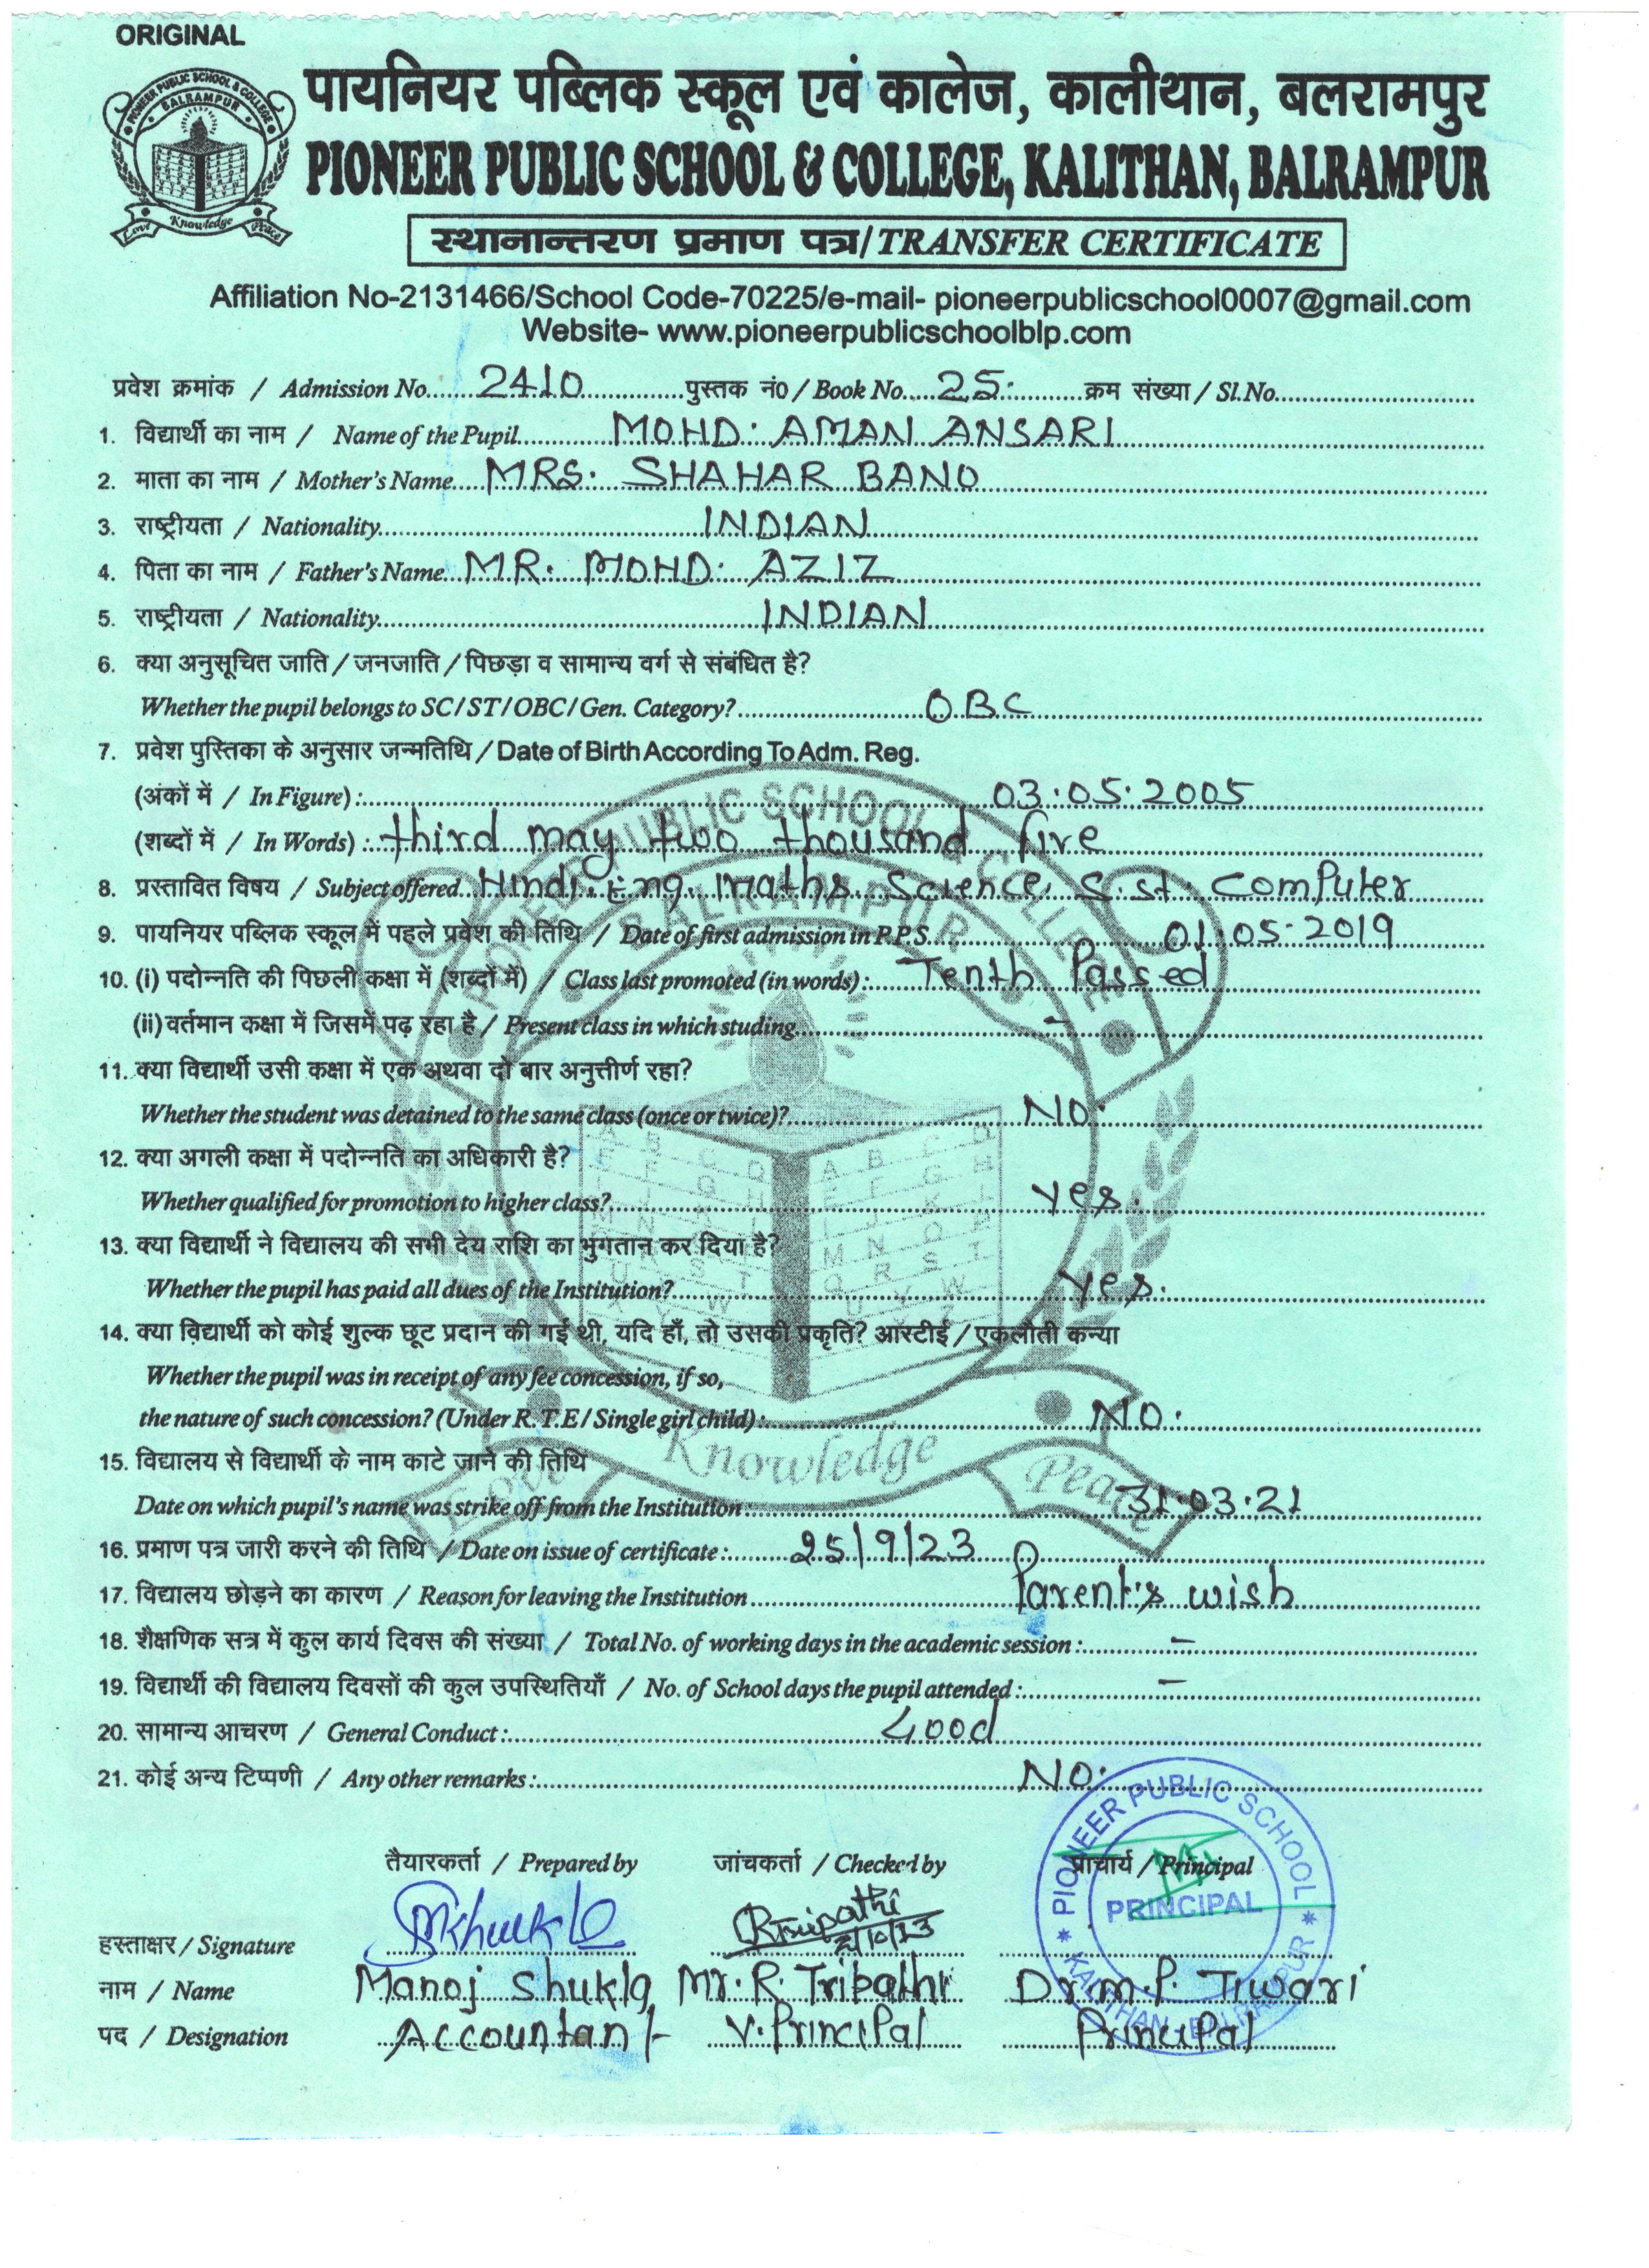 ORIGINAL
PIONEER PUBLIC SCHOOL & COLLEGE
BALRAMPUR
Love Knowledge Peace
पायनियर पब्लिक स्कूल एवं कालेज, कालीथान, बलरामपुर
PIONEER PUBLIC SCHOOL & COLLEGE, KALITHAN, BALRAMPUR
स्थानान्तरण प्रमाण पत्र/TRANSFER CERTIFICATE
Affiliation No-2131466/School Code-70225/e-mail- pioneerpublicschool0007@gmail.com
Website- www.pioneerpublicschoolblp.com
प्रवेश क्रमांक / Admission No. 2410 पुस्तक नं0 / Book No. 25. क्रम संख्या / Sl.No.
1. विद्यार्थी का नाम / Name of the Pupil MOHD. AMAN ANSARI
2. माता का नाम / Mother's Name MRS. SHAHAR BANO
3. राष्ट्रीयता / Nationality INDIAN
4. पिता का नाम / Father's Name MR. MOHD. AZIZ
5. राष्ट्रीयता / Nationality INDIAN
6. क्या अनुसूचित जाति / जनजाति / पिछड़ा व सामान्य वर्ग से संबंधित है?
Whether the pupil belongs to SC/ST/OBC/Gen. Category? OBC
7. प्रवेश पुस्तिका के अनुसार जन्मतिथि / Date of Birth According To Adm. Reg.
(अंकों में / In Figure) : 03.05.2005
(शब्दों में / In Words) : third may two thousand five
8. प्रस्तावित विषय / Subject offered Hindi, Eng. Maths Science, S.st. Computer
9. पायनियर पब्लिक स्कूल में पहले प्रवेश की तिथि / Date of first admission in P.P.S. 01.05.2019
10. (i) पदोन्नति की पिछली कक्षा में (शब्दों में) / Class last promoted (in words) : Tenth Passed
(ii) वर्तमान कक्षा में जिसमें पढ़ रहा है / Present class in which studing -
11. क्या विद्यार्थी उसी कक्षा में एक अथवा दो बार अनुत्तीर्ण रहा?
Whether the student was detained to the same class (once or twice)? NO.
12. क्या अगली कक्षा में पदोन्नति का अधिकारी है?
Whether qualified for promotion to higher class? Yes.
13. क्या विद्यार्थी ने विद्यालय की सभी देय राशि का भुगतान कर दिया है?
Whether the pupil has paid all dues of the Institution? Yes.
14. क्या विद्यार्थी को कोई शुल्क छूट प्रदान की गई थी, यदि हाँ, तो उसकी प्रकृति? आरटीई / एकलौती कन्या
Whether the pupil was in receipt of any fee concession, if so,
the nature of such concession? (Under R.T.E/ Single girl child) : NO.
15. विद्यालय से विद्यार्थी के नाम काटे जाने की तिथि
Date on which pupil's name was strike off from the Institution : 31.03.21
16. प्रमाण पत्र जारी करने की तिथि / Date on issue of certificate : 25/9/23
17. विद्यालय छोड़ने का कारण / Reason for leaving the Institution Parent's wish
18. शैक्षणिक सत्र में कुल कार्य दिवस की संख्या / Total No. of working days in the academic session : -
19. विद्यार्थी की विद्यालय दिवसों की कुल उपस्थितियाँ / No. of School days the pupil attended : -
20. सामान्य आचरण / General Conduct : Good
21. कोई अन्य टिप्पणी / Any other remarks : NO.
तैयारकर्ता / Prepared by जांचकर्ता / Checked by प्राचार्य / Principal
PIONEER PUBLIC SCHOOL
PRINCIPAL
KALITHAN - BALRAMPUR
हस्ताक्षर / Signature MShukla RTripathi
2/10/23
नाम / Name Manoj Shukla Mr. R. Tripathi Dr M.P. Tiwari
पद / Designation Accountant V. Principal Principal